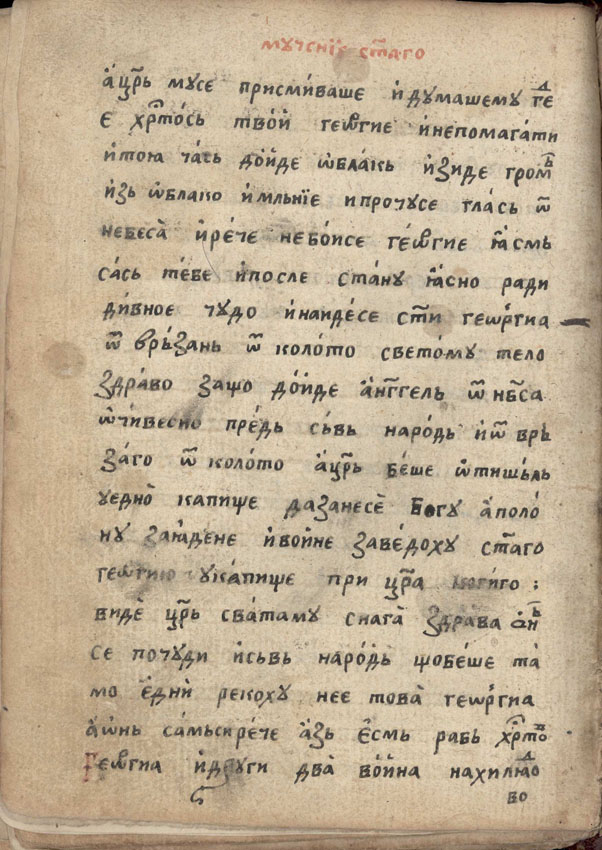 мꙋченїе ст҃аго
а҆ цр҃ь мꙋ се присмиваше и҆ дꙋмаше мꙋ гдⷣе
е҆ хрⷭ҇тось твои҆ геѡ҆гие и҆ не помагати
и҆ тою часъ дои҆де ѡ҆блакь и҆зиде громъ
и҆зь ѡ҆блако и҆ мльнїе и прочꙋ се гласъ ѿ
небеса̀ и҆ рече не бо́и се гео҆ргие ꙗ҆ смь
сась тебе и҆ после станꙋ ꙗ҆сно ради
дивное чꙋдо и҆ наиде се ст҃и геѡргиа
ѿ врѣзань ѿ колото светомꙋ тело
здраво защо дои҆де а҆нгг҃ель ѿ нб҃са
ѡ҆чивесно предь сьвь народь и҆ ѿврѣ
заго ѿ колото а҆ цр҃ь беше ѡ҆тишьль
ꙋ едно̀ капище да занесѐ богꙋ а҆поло
нꙋ заꙗ҆дене и҆ воине заведохꙋ ст҃аго
геѡ҆гию ꙋ капище при цр҃а
видѐ цр҃ь сватамꙋ снага̀ здрава
се почꙋди и҆ сьвь народь що беше та
мо е҆днѝ рекохꙋ не е това̀ геѡргиа
а҆ ѡ҆нь самь си рече а҆зь е҆смь рабь хрⷭ҇то
геѡ҆гиа и҆ дрꙋги два̀ вои҆на нахилⷣꙗо
во